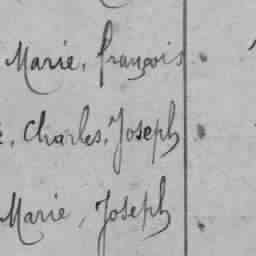 Marie, françois
, Charles, Joseph
Marie, Joseph